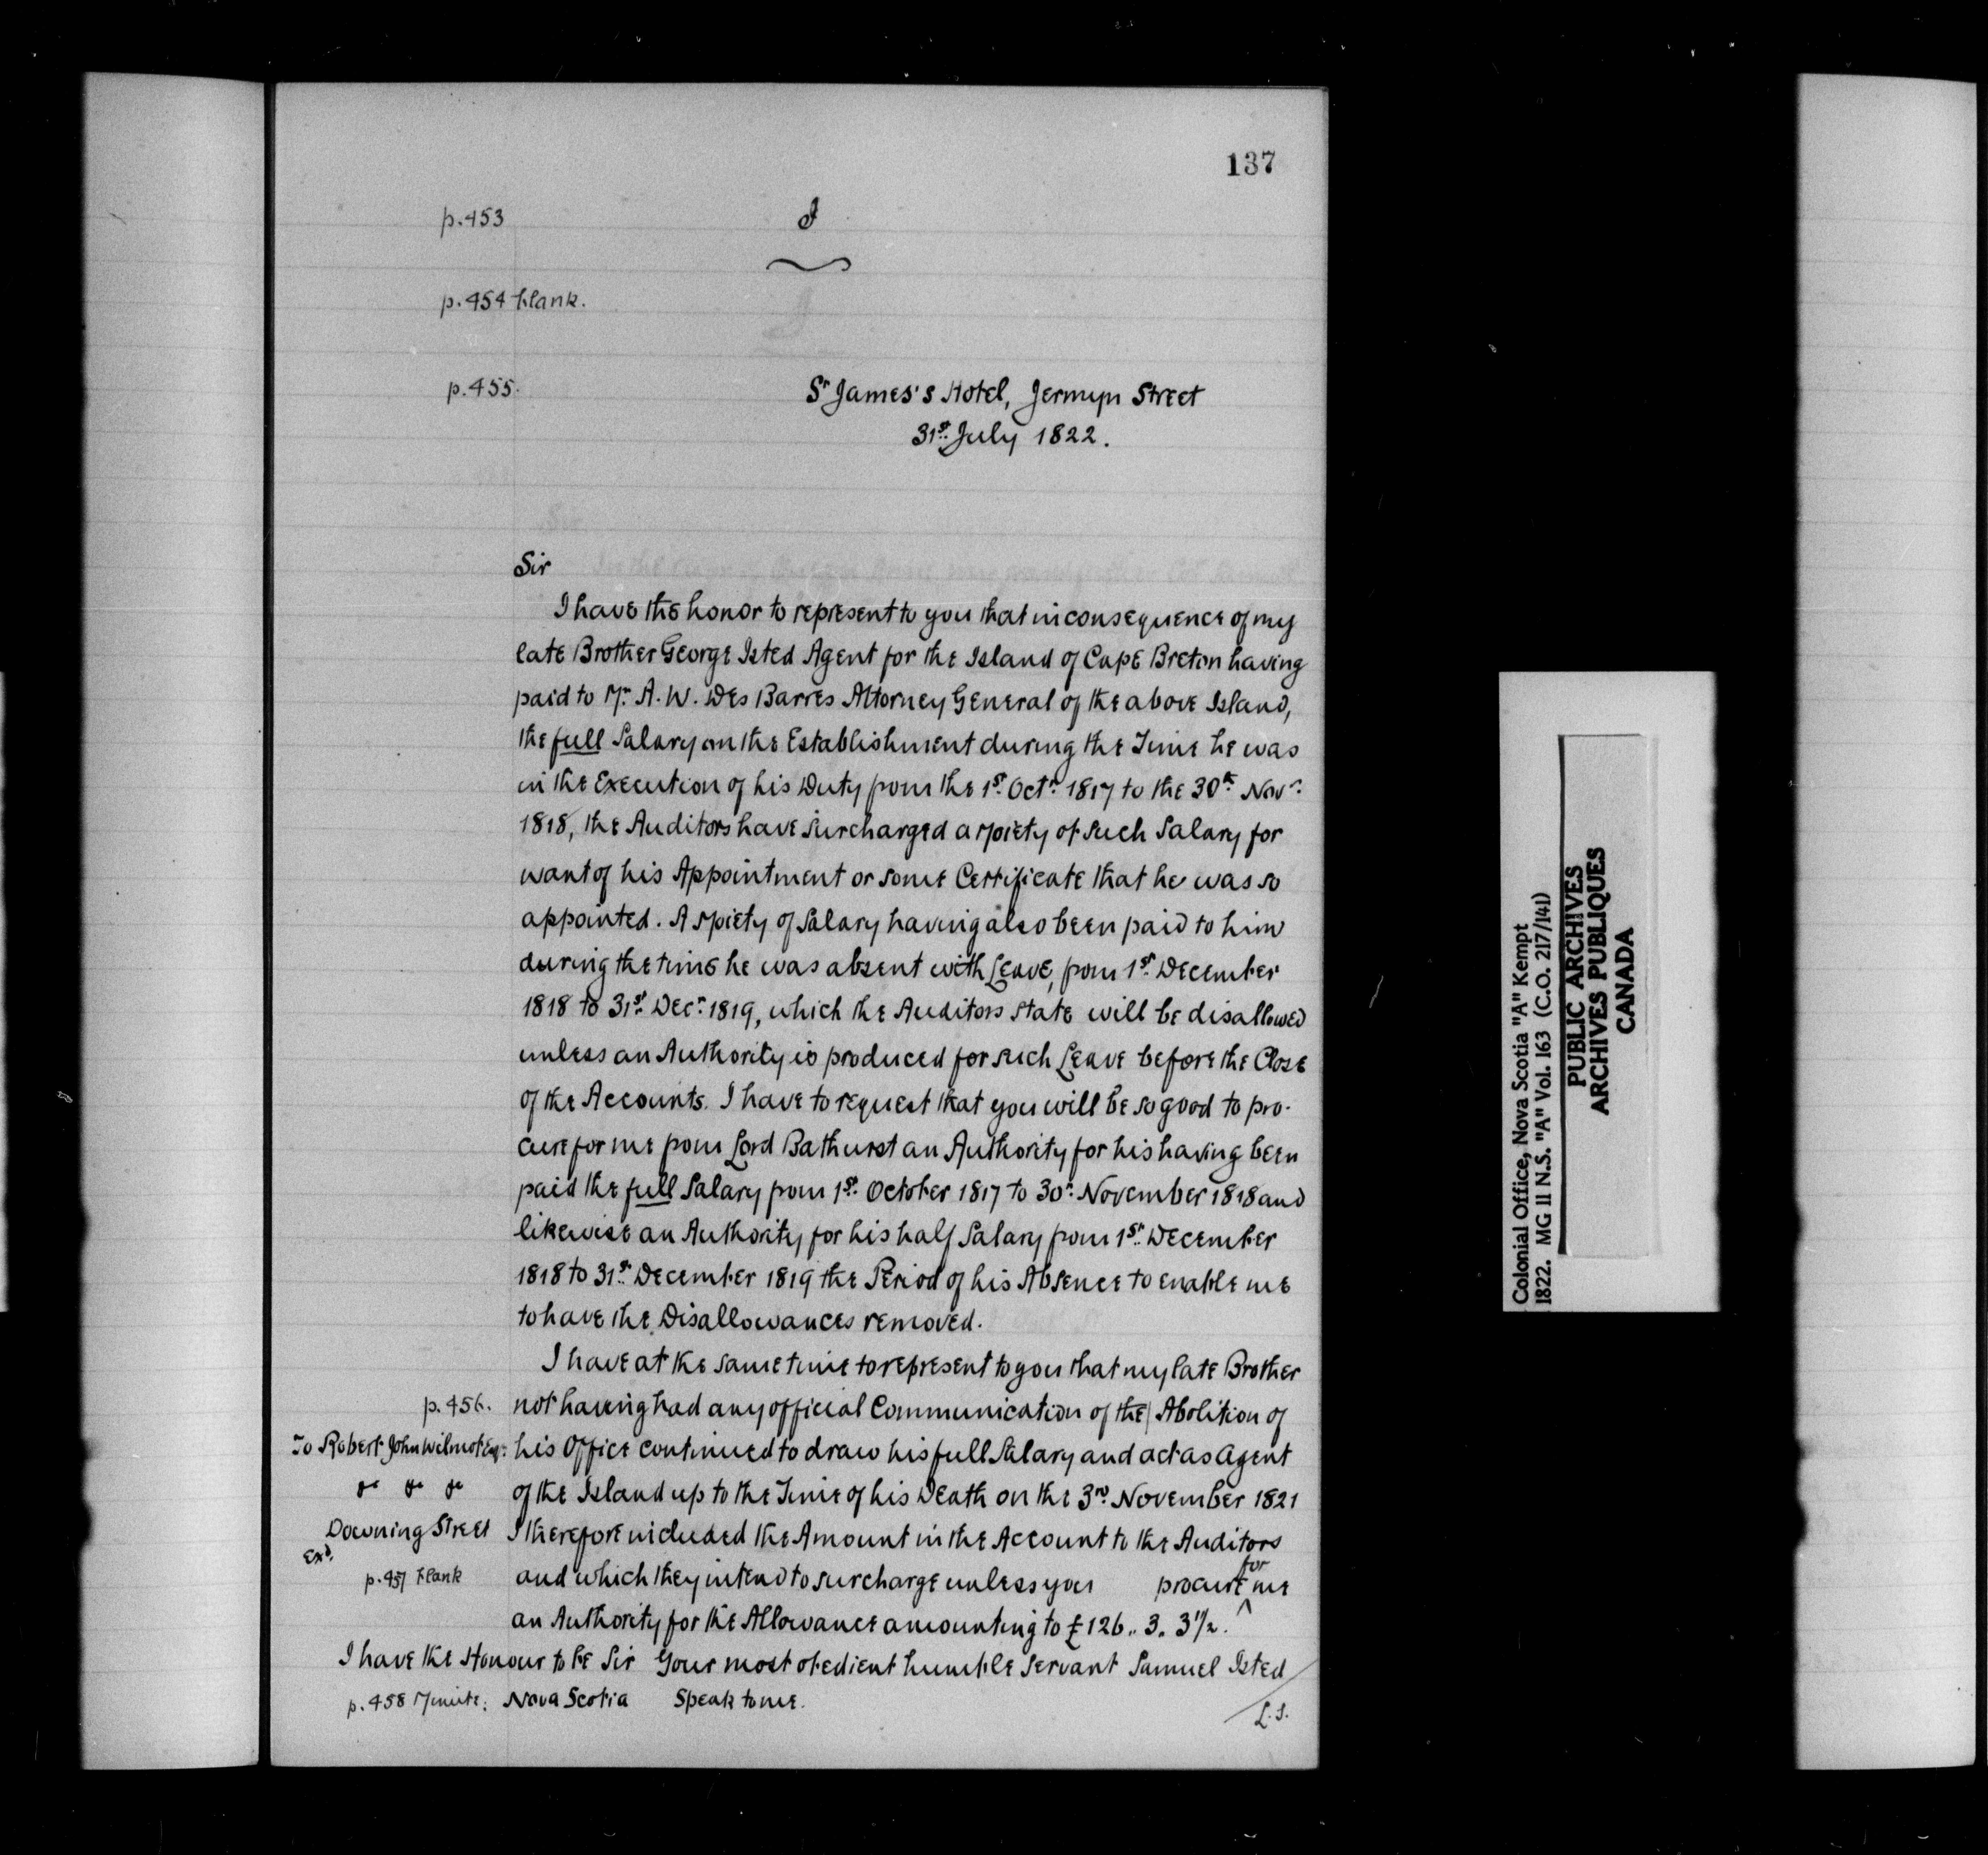 137
p.453 I
p.454 blank.
p.455. St James's Hotel, Jermyn Street
31st July 1822.
Sir
I have the honor to represent to you that in consequence of my
late Brother George Isted Agent for the Island of Cape Breton having
paid to Mr. A. W. Des Barres Attorney General of the above Island,
the full Salary on the Establishment during the Time he was
in the Execution of his Duty from the 1st. Octr. 1817 to the 30th Novr.
1818, the Auditors have surcharged a Moiety of such Salary for
want of his Appointment or some Certificate that he was so
appointed. A Moiety of Salary having also been paid to him
during the time he was absent with Leave, from 1st. December
1818 to 31st. Decr. 1819, which the Auditors state will be disallowed
unless an Authority is produced for such Leave before the Close
of the Accounts. I have to request that you will be so good to pro-
cure for me from Lord Bathurst an Authority for his having been
paid the full Salary from 1st. October 1817 to 30th. November 1818 and
likewise an Authority for his half Salary from 1st. December
1818 to 31st. December 1819 the Period of his Absence to enable me
to have the Disallowances removed.
I have at the same time to represent to you that my late Brother
p.456. not having had any official Communication of the | Abolition of
To Robert John Wilmot Esqr. his Office continued to draw his full Salary and act as Agent
&c &c &c of the Island up to the Time of his Death on the 3rd. November 1821
Downing Street I therefore included the Amount in the Account to the Auditors
Exd.
p.457 blank and which they intend to surcharge unless you procure for me
an Authority for the Allowance amounting to £126.. 3. 3 1/2.
I have the Honour to be Sir Your most obedient humble Servant Samuel Isted
p.458 Minute: Nova Scotia Speak to me.
L.S.
Colonial Office, Nova Scotia "A" Kempt
1822. MG 11 N.S. "A" Vol. 163 (C.O. 217/141)
PUBLIC ARCHIVES
ARCHIVES PUBLIQUES
CANADA